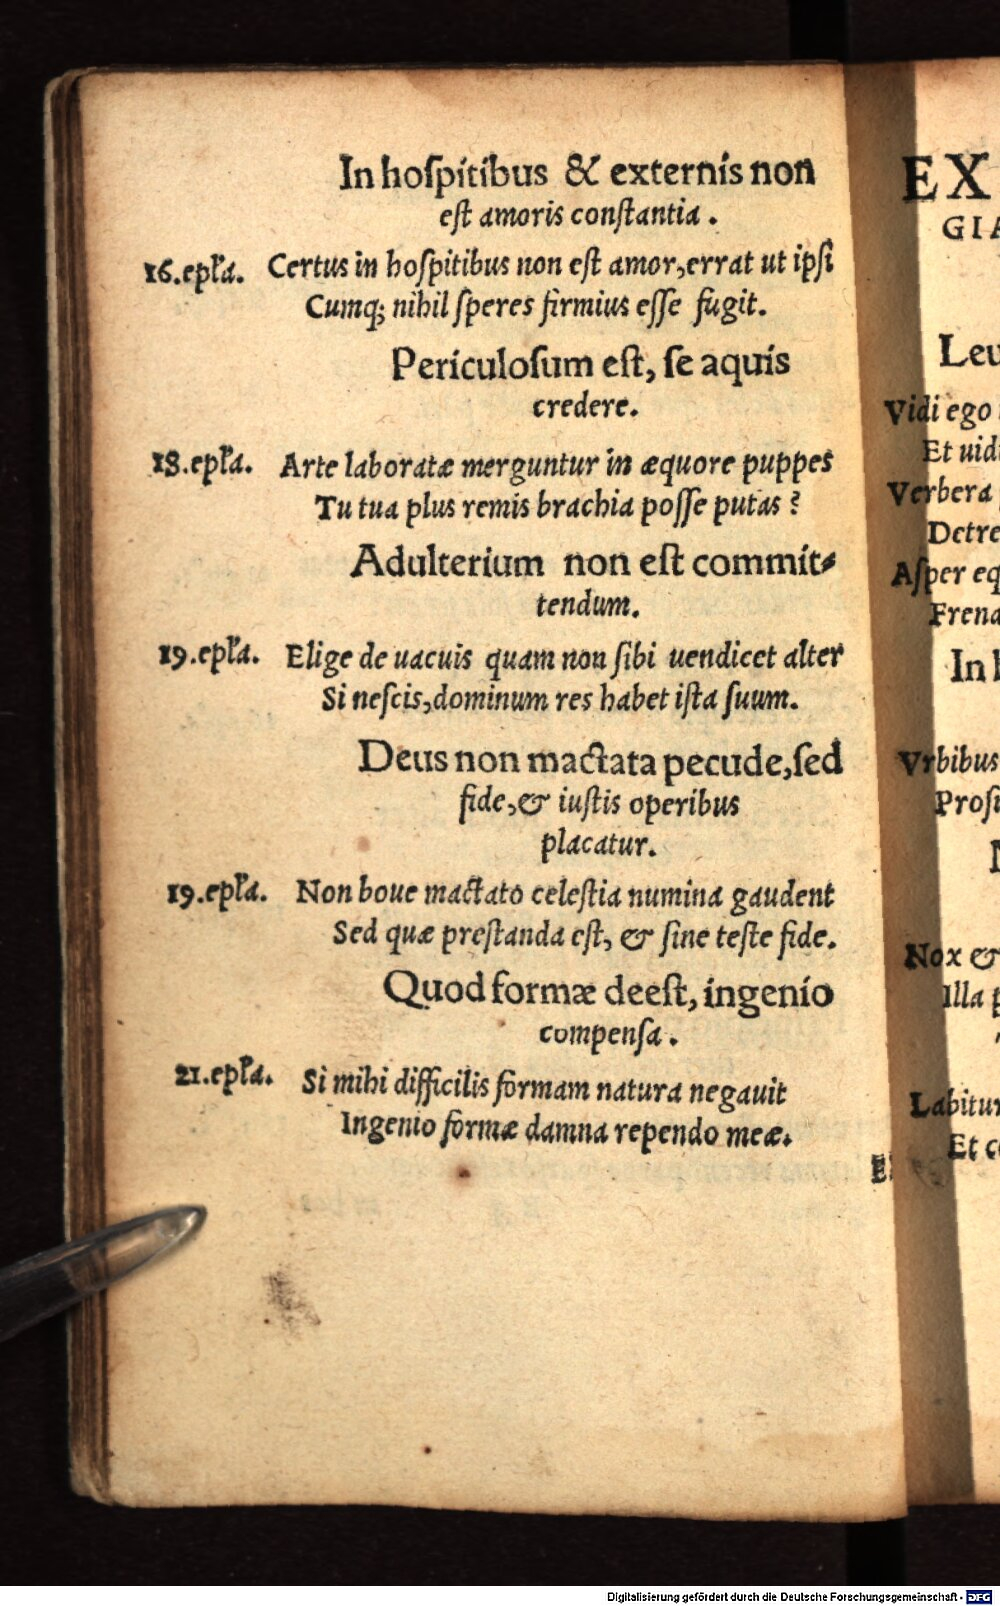 In hoſpitibus & externis non
eſt amoris conſtantia.
16.epła. Certus in hoſpitibus non eſt amor, errat ut ipſi
Cumq; nihil ſperes firmius eſſe fugit.
Periculoſum eſt, ſe aquis
credere.
18.epła. Arte laboratæ merguntur in æquore puppes
Tu tua plus remis brachia poſſe putas?
Adulterium non eſt commit⸗
tendum.
19.epła. Elige de uacuis quam non ſibi uendicet alter
Si neſcis, dominum res habet iſta ſuum.
Deus non mactata pecude, ſed
fide, & iuſtis operibus
placatur.
19.epła. Non boue mactato celeſtia numina gaudent
Sed quæ preſtanda eſt, & ſine teſte fide.
Quod formæ deeſt, ingenio
compenſa.
21.epła. Si mihi difficilis formam natura negauit
Ingenio formæ damna rependo meæ.
EX
GIA
Leu
Vidi ego
Et uidi
Verbera
Detre
Aſper eq
Frena
In h
Vrbibus
Proſi
Nox &
Illa p
Labitur
Et c
Digitalisierung gefördert durch die Deutsche Forschungsgemeinschaft - DFG